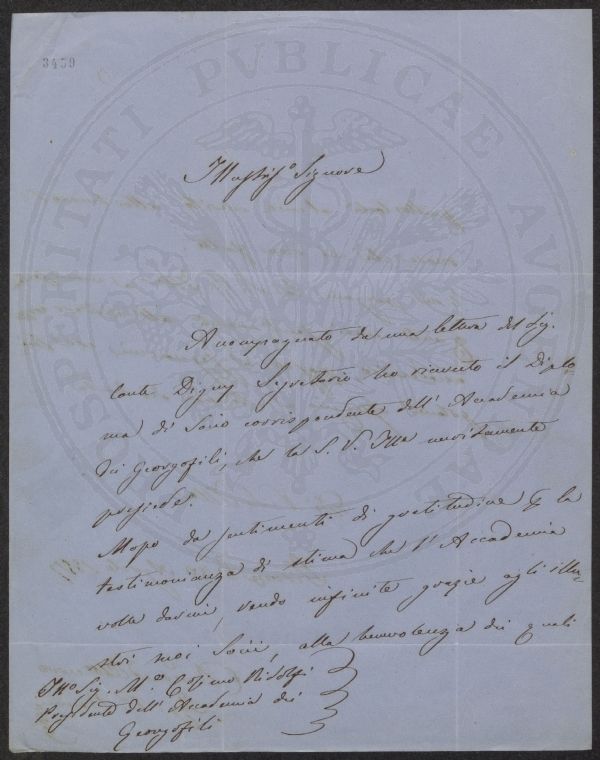 3459
PROSPERITATI PVBLICAE AVGENDAE
Illustriss.o Signore
Accompagnato da una lettera del Sig.
Conte Digny Segretario ho ricevuto il Diplo
ma di Socio corrispondente dell' Accademia
dei Georgofili, che la S. V. Illa meritamente
presiede.
Mosso da sentimenti di gratitudine p la
testimonianza di stima che l' Accademia
volle darmi, rendo infinite grazie agli illu-
stri suoi Socii, alla benevolenza dei quali
Illo Sig. M.o Cosimo Ridolfi
Presidente dell' Accademia dei
Georgofili